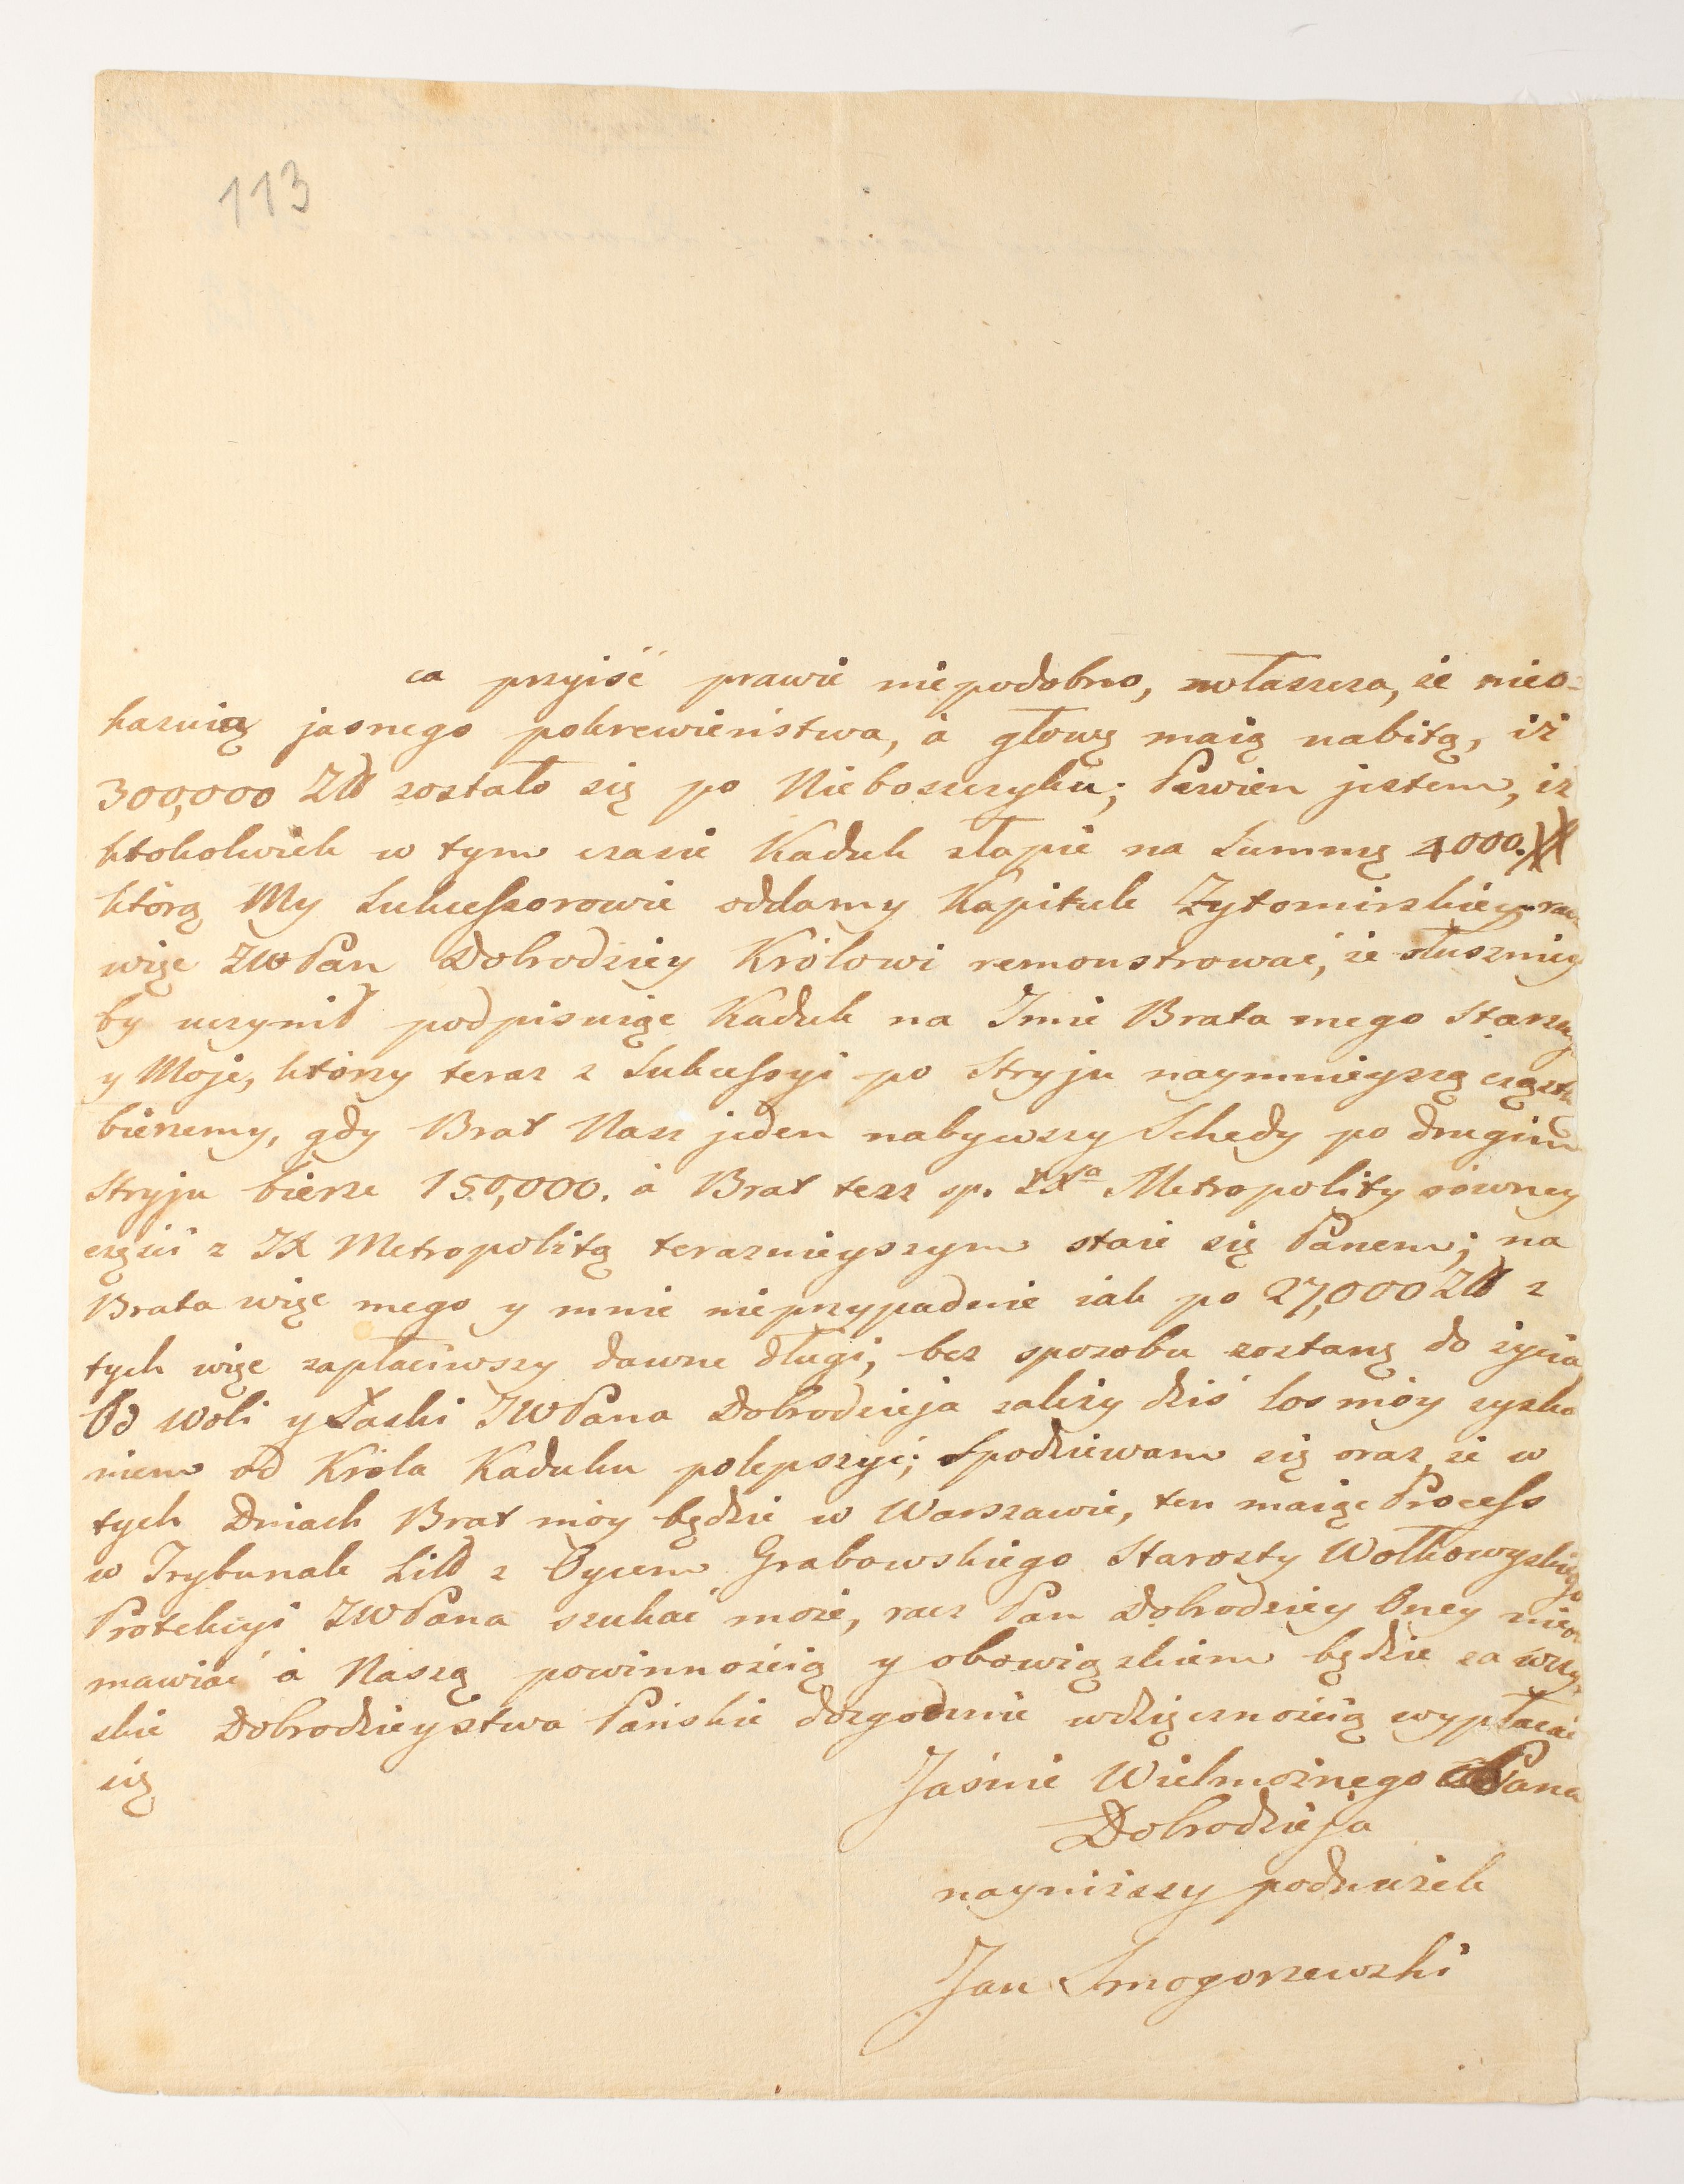 113
ca przyiść prawie niepodobno, zwłaszcza, że nieo-
kazuią jasnego pokrewieństwa, à głowę maią nabitą, iż
300,000 Złł zostało się po Nieboszczyku; Pewien jestem, iż
ktokolwiek w tym czasie Kaduk złapie na Summę 4000.
którą My Sukceſsorowie oddamy Kapitule Zytomirskiey, racz
więc JWPan Dobrodziey Królowi remonstrować, że słuszniey
by uczynił podpisuiąc Kaduk na Imie Brata mego Starszeg
y Moje, którzy teraz z Sukceſsyi po Stryju naymnieyszą cząstk
bierzemy, gdy Brat Nasz jeden nabywszy Schedy po drugim
Stryju bierze 150,000. à Brat tesz sp. JXa Metropolity równey
części z JX Metropolitą teraznieyszym staie się Panem; na
Brata więc mego y mnie nieprzypadnie iak po 27,000 Złł z
tych więc zapłaciwszy dawne długi, bez sposobu zostanę do życia
Od woli y Łaski JWPana Dobrodzieja zależy dziś los móy zyska
niem od Króla Kaduku polepszyć; Spodziewam się oraz, że w
tych Dniach Brat móy będzie w Warszawie, ten maiąc Proceſs
w Trybunale Litt z Oycem Grabowskiego Starosty Wołkowyskiego
Protekcyi JWPana szukać może, racz Pan Dobrodziey Oney nieod
mawiać à Naszą powinnością y obowiązkiem będzie za wszy-
skie Dobrodzieystwa Pańskie dozgodnie wdzięcznością wypłacać
się
Jaśnie Wielmożnego Pana
Dobrodzieja
nayniższy podnużek
Jan Smogorzewski